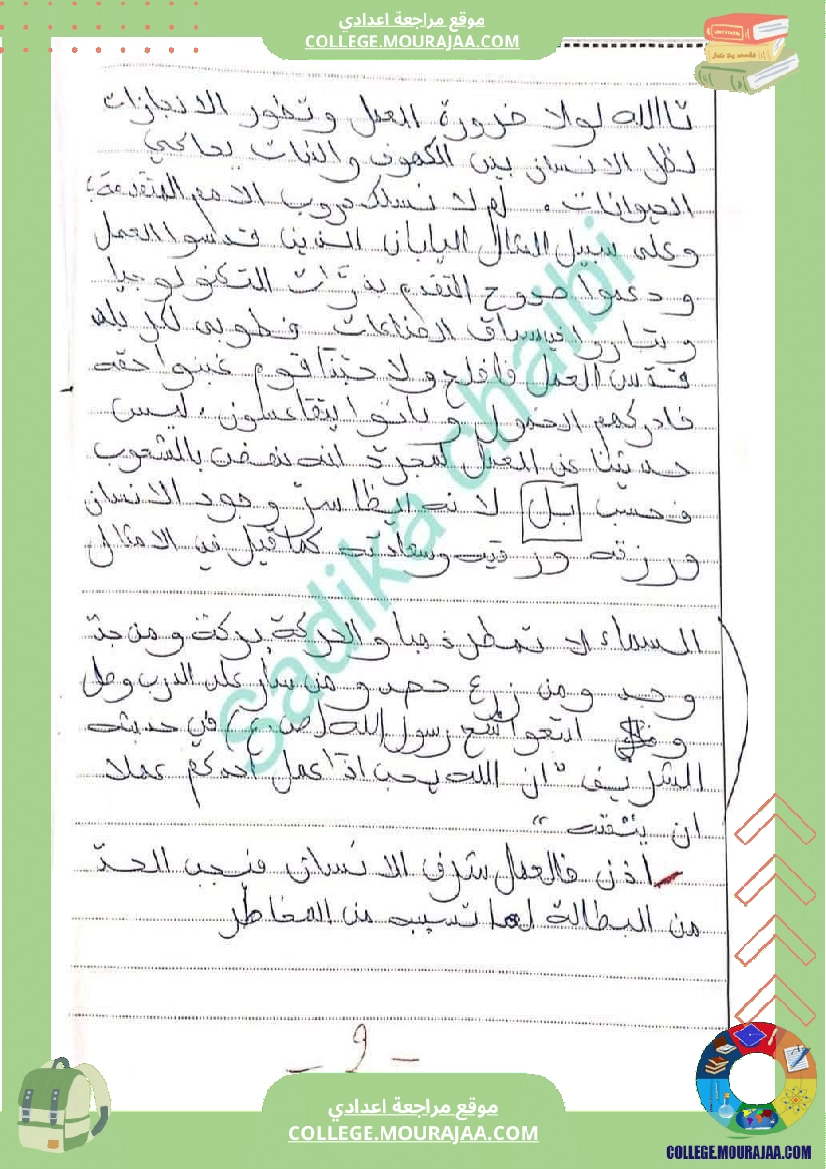 موقع مراجعة اعدادي
COLLEGE.MOURAJAA.COM
تالله لولا ضرورة العمل وتطور الانجازات
لظل الانسان بين الكهوف والنبات يحاكي
الحيوانات. لم لا نسلك دروب الامم المتقدمة؛
وعلى سبيل المثال اليابان الذين قدسوا العمل
ودعموا صروح التقدم بذرات التكنولوجيا
وتباروا في سباق الصناعات فطوبى لكل بلد
قدس العمل فأفلح ولا حبذا قوم غبنوا حقه
فادركهم الخمول وباتوا يتقاعسون. ليس
حديثنا عن العمل لمجرد انه نهض بالشعوب
فحسب بل لانه ايظا سر وجود الانسان
ورزقه ورقيه وسعادته كما قيل في الامثال
السماء لا تمطر ذهبا والحركة بركة ومن جد
وجد ومن زرع حصد ومن سار على الدرب وصل
اتبعوا رسول الله (ص ع) في حديثه
الشريف "ان الله يحب اذا عمل احدكم عملا
ان يتقنه"
اذن فالعمل شرف الانسان فيجب الحد
من البطالة لما تسببه من المخاطر
Sadika chaibi
موقع مراجعة اعدادي
COLLEGE.MOURAJAA.COM
COLLEGE.MOURAJAA.COM